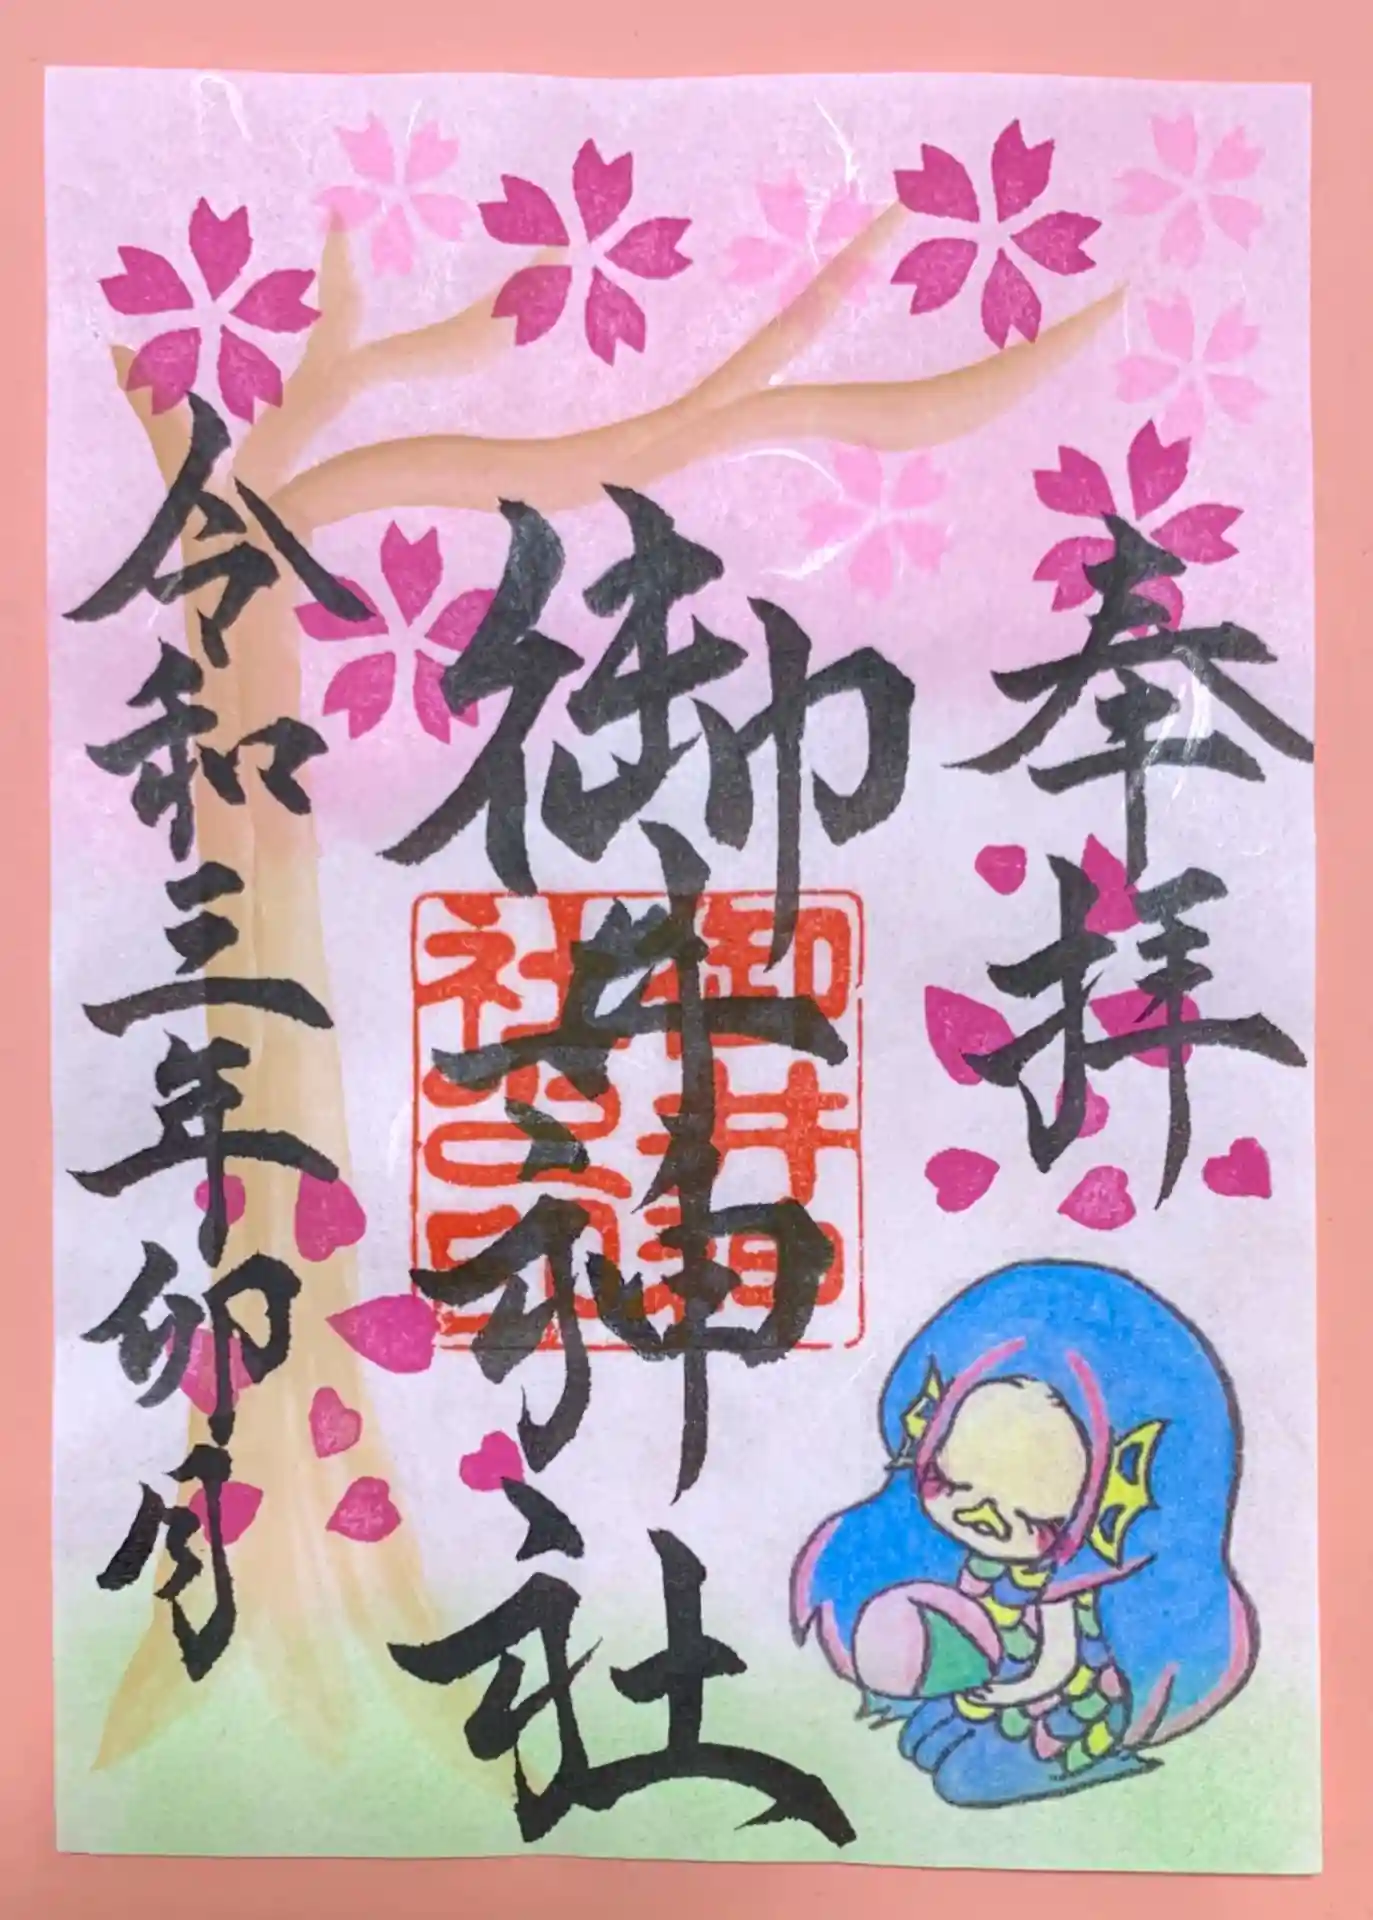 奉拝
御井神社
御井神
社之印
令和三年卯月